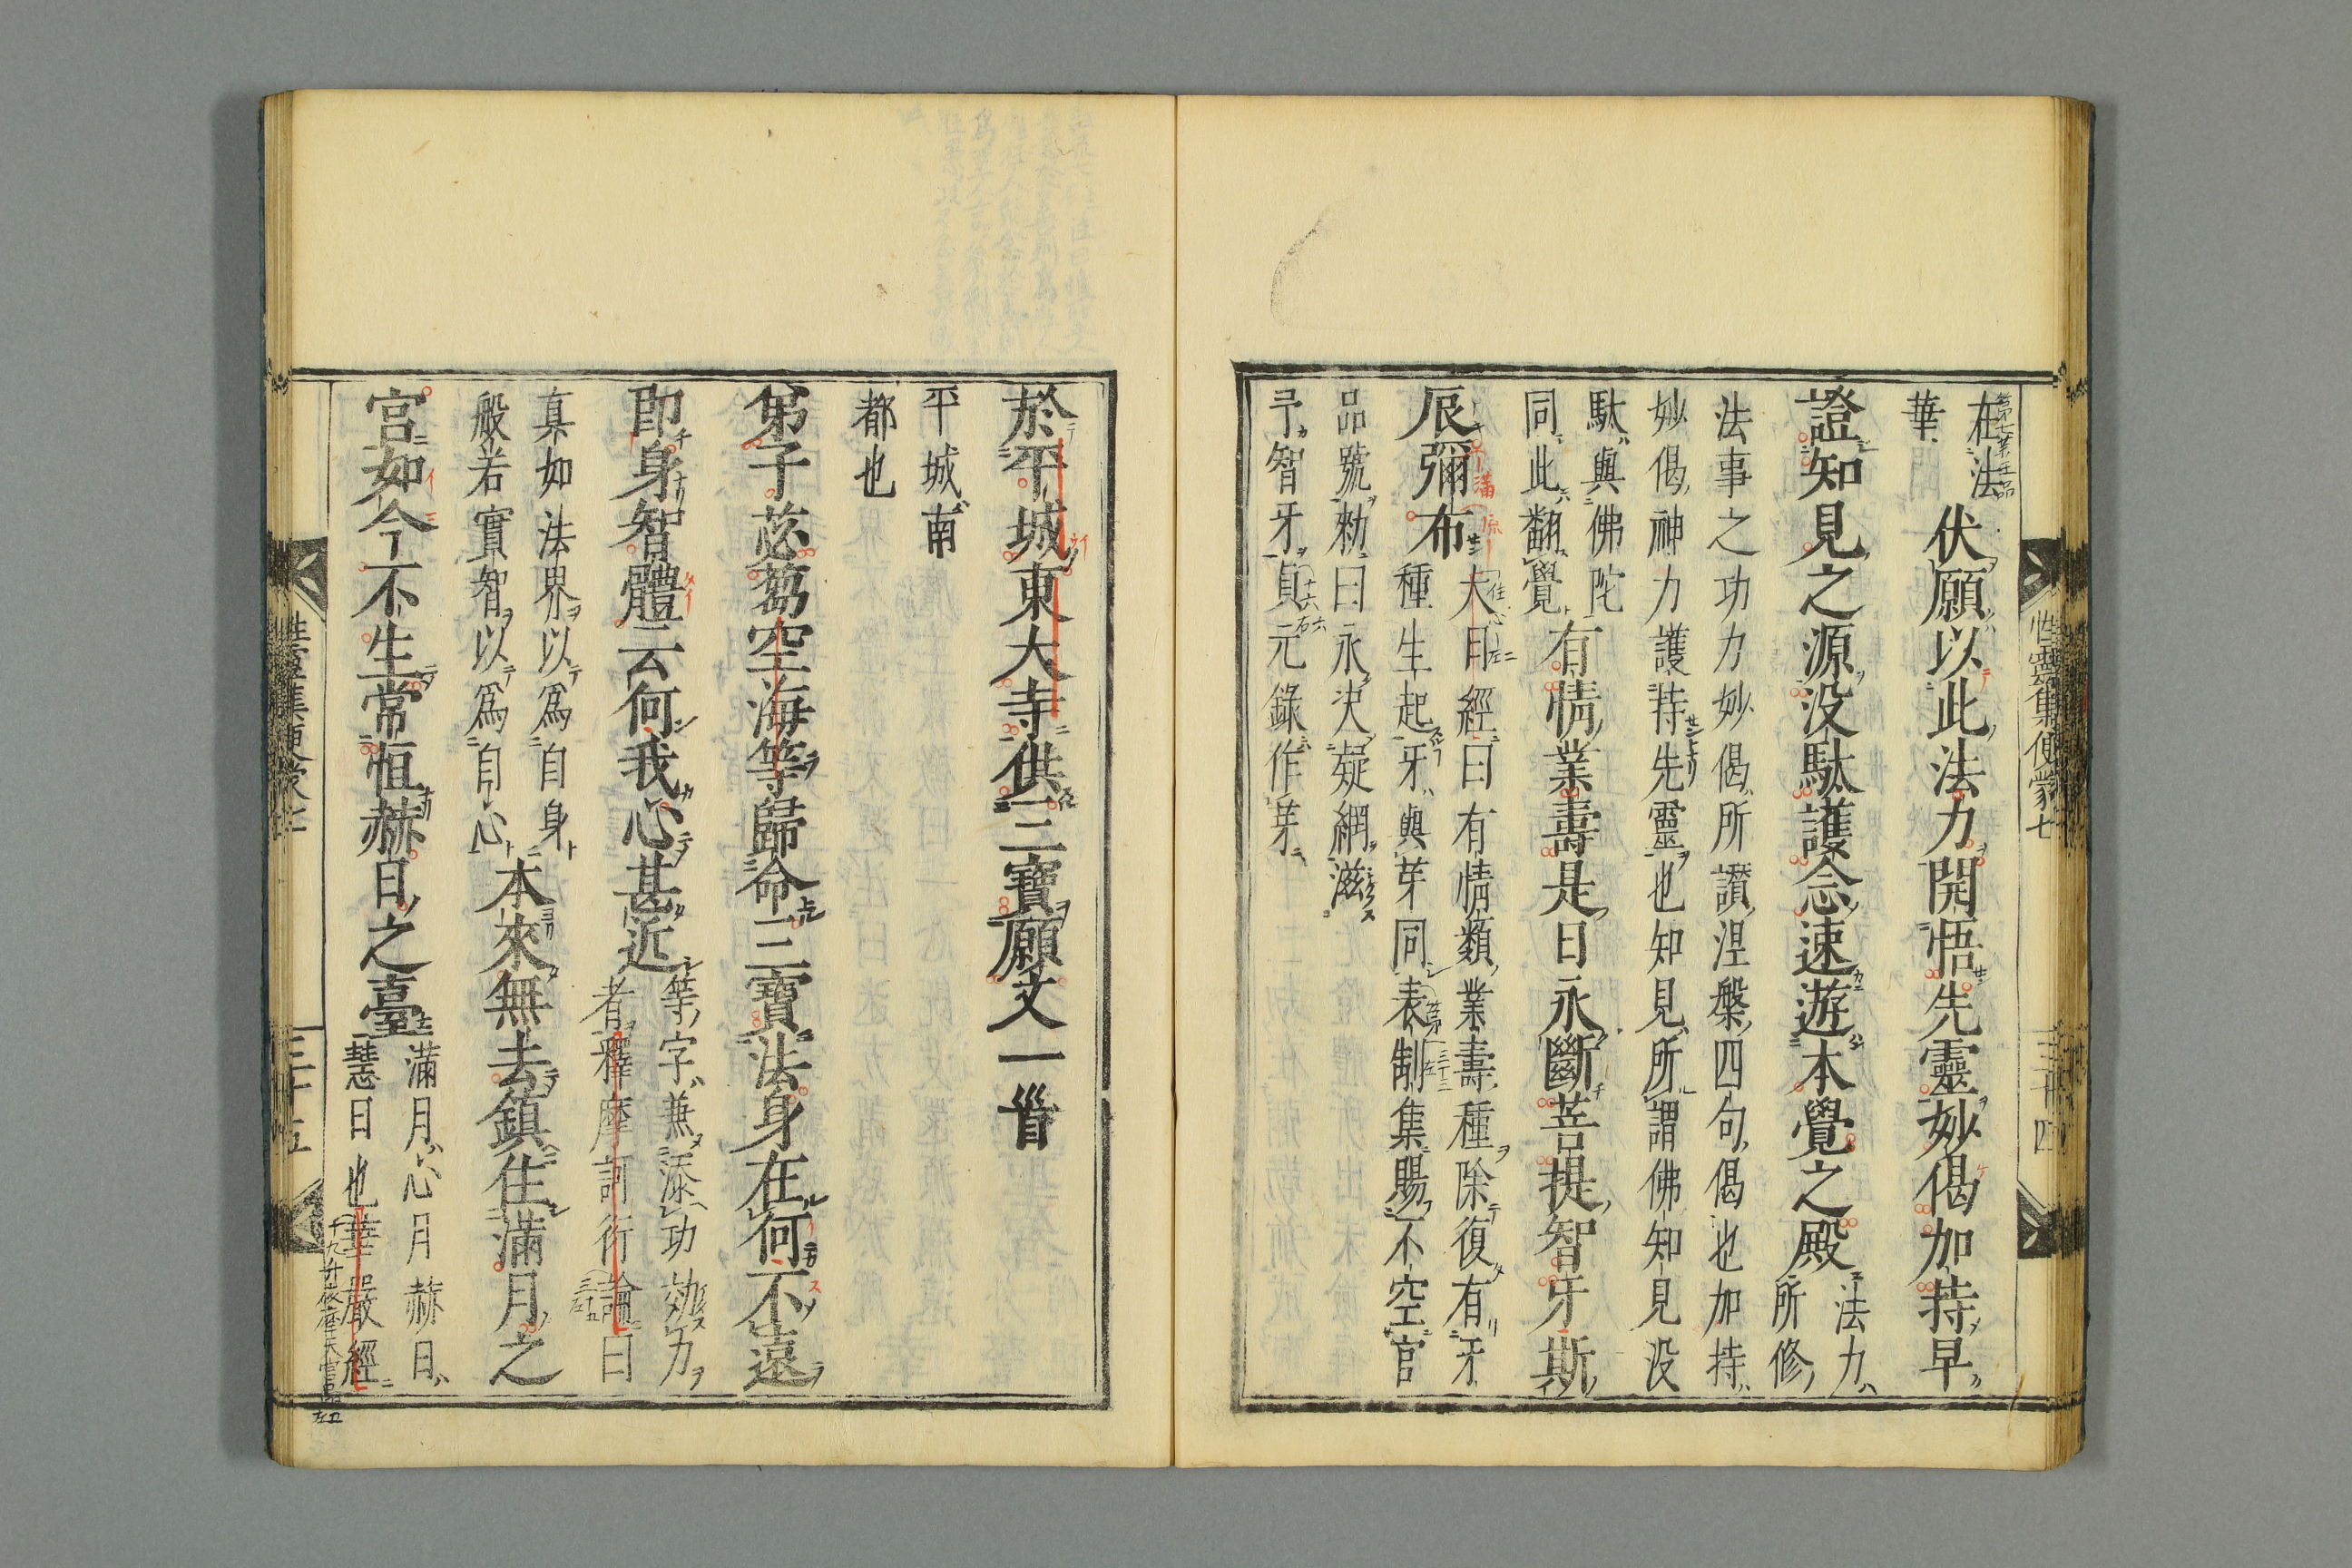 性靈集便蒙七
三十四
在法
華
伏願以此法力開悟先靈妙偈加持早
證知見之源没駄護念速遊本覺之殿
法力
所修
法事之功力妙偈所讃涅槃四句偈也加持
妙偈神力護持先靈也知見所謂佛知見没
駄與佛陀
同此翻覺
有情業壽是日永斷菩提智牙斯
辰彌布
大日經曰有情類業壽種除復有牙
種生起牙與芽同表制集賜不空官
品號勑曰永决疑網滋
予智牙貞元錄作芽
於平城東大寺供三寶願文一首
平城南
都也
弟子苾蒭空海等歸命三寶法身在何不遠
即身智體云何我心甚近
等字兼添功効力
者釋摩訶衍論曰
真如法界以爲自身
般若實智以爲自心
本來無去鎮住滿月之
宮如今不生常恒赫日之臺
滿月心月赫日
慧日也華嚴經
性靈集便蒙七
三十五